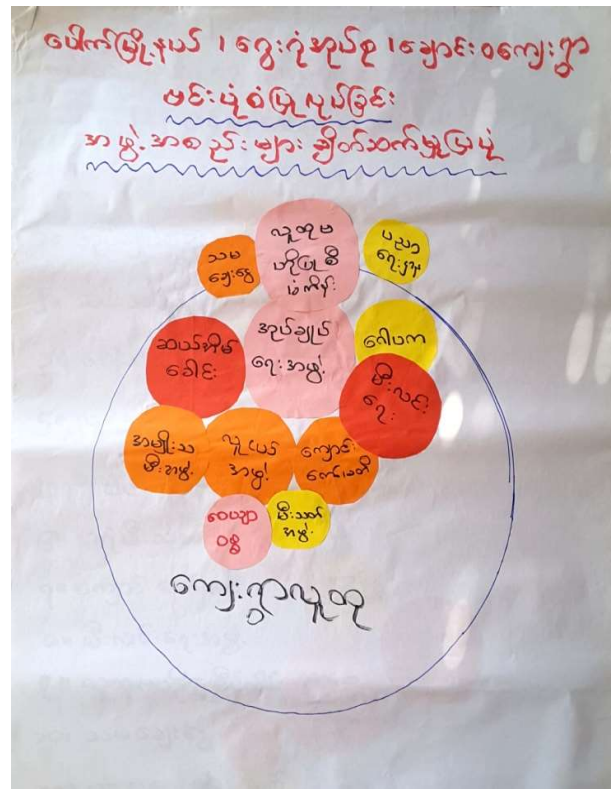 ပေါက်မြို့နယ် ၊ ဂွေးဂုံအုပ်စု ၊ ချောင်းဝကျေးရွာ
ဗင်းပုံစံပြုလုပ်ခြင်း
အဖွဲ့အစည်းများ ချိတ်ဆက်မှုပြပုံ
သမ
ချေးငွေ
လူထုဗဟိုပြုစီမံကိန်း
ပညာရေးမှူး
ဆယ်အိမ်
ခေါင်း
အုပ်ချုပ်
ရေးအဖွဲ့
ဂေါပက
မီးလင်း
ရေး
အမျိုးသ
မီးအဖွဲ့
လူငယ်
အဖွဲ့
ကျောင်း
ကော်မတီ
ဝေယျာ
ဝစ္စ
မီးသတ်
အဖွဲ့
ကျေးရွာလူထု